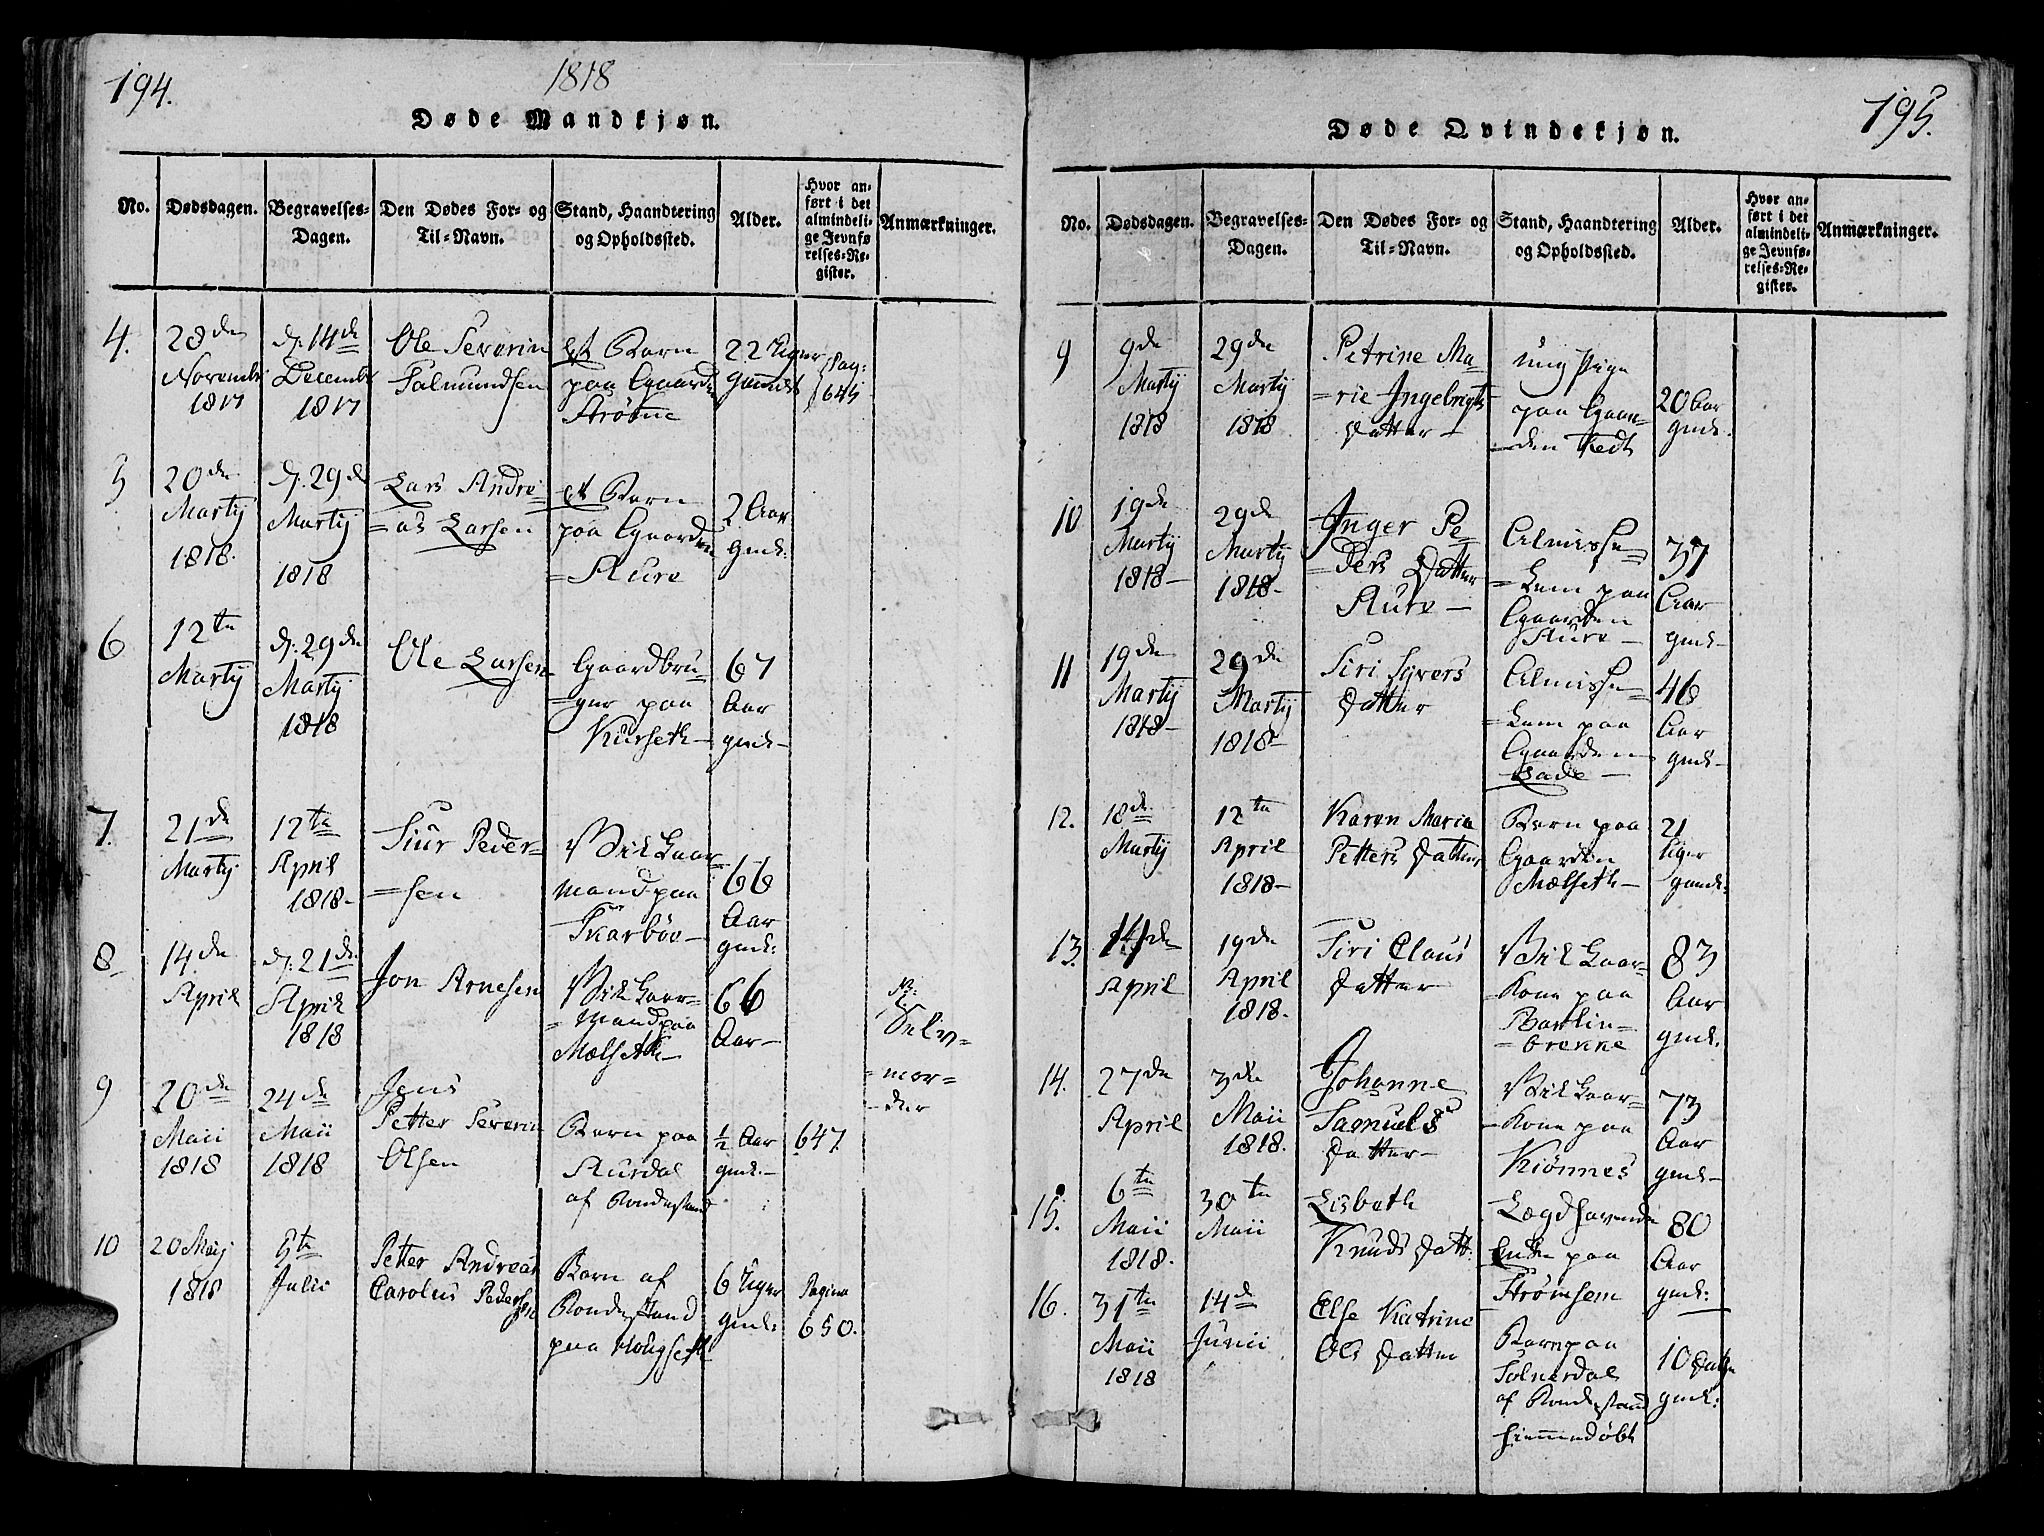 194.
1818
Døde Mandkjøn.
No.
Dødsdagen.
Begravelses-
Dagen.
Den Dødes For- og
Til-Navn.
Stand, Haandtering
og Opholdssted.
Alder.
Hvor an-
ført i det
almindeli-
ge Jevnfø
relses-Re-
gister.
Anmærkninger.
4.
28de
Novembr
1817
d: 14de
Decembr
1817
Ole Severin
Salmundsen
et Barn
paa Gaarden
Strømme
22 Uger
gammel
Pag:
645
5
20de
Martij
1818.
d: 29de
Martij
1818
Lars Andre-
=as Larsen
et Barn
paa Gaarden
=Aure
2 Aar
gml:
6
12te
Martij
d: 29de
Martij
1818
Ole Larsen
Gaardbru-
=ger paa
Kurseth-
67
Aar
gml-
7.
21de
Martij
12te
April
1818-
Siur Peder-
=sen
Vilkaar-
mand paa
Skarbøe-
66
Aar
gml:
8-
14de
April
d: 21de
April
1818
Jon Arnesen
Vilkaar-
=mand paa
Mælseth-
66
Aar-
NB:
Selv-
=mor-
-der
9
20de
Maii
1818
24de
Maii
1818
Jens
Petter Severin
Olsen
Barn paa
Aurdal
af Bondestand
½ Aar
gml.-
647
10
20 Maij
1818
5te
Julii
Petter Andreas
Carolus Peder=
sen
Barn af
Bondestand
paa Holigseth
6 Uger
gml:
Pagina
650.
195.
Døde Qvindekjøn.
No.
Dødsdagen.
Begravelses-
Dagen.
Den Dødes For- og
Til-Navn.
Stand, Haandtering
og Opholdssted.
Alder.
Hvor an-
ført i det
almindeli-
ge Jevnfø-
relses-Re-
gister.
Anmærkninger.
9
9de
Martij
1818
29de
Martij
1818
Petrine Ma-
=rie Ingebrigts
Datter-
ung Pige
paa Gaar-
=den Tedt
20 Aar
gml.
10
19de
Martij
1818-
29de
Martij
1818-
Inger Pe-
=ders Datter
Aure-
Almisse-
=Lem paa
Gaarden
Aure-
37
Aar
gml-
11
19de
Martij
1818-
29de
Martij
1818-
Siri Syvers
Datter
Almisse-
=Lem paa
Gaarden
Lade-
46
Aar
gml-
12.
18de
Martij
12te
April
1818-
Karen Maria
Petters Datter
Barn paa
Gaarden
Mælseth-
21
Uger
gaml:
13.
14de
April
19de
April
1818.
Siri Claus
Datter
Vilkaar-
-Kone paa
Barlin-
=brække
83
Aar
gml.
14.
27de
April
3die
Maii
1818.
Johanne
Samuels
Datter-
Vilkaar-
-Kone paa
Kiønnes
73
Aar
gml-
15.
6te
Maii
1818.
30te
Maii
Lisbeth
Knuds Datt:
Lægdhavende
Enke paa
Strømsem
80
Aar
gml:
16.
31te
Maii
1818
14de
Junii
Else Katrine
Ols Datter
Barn paa
Solnørdal
af Bondestand
hiemmedøbt
10 Dage
gml: